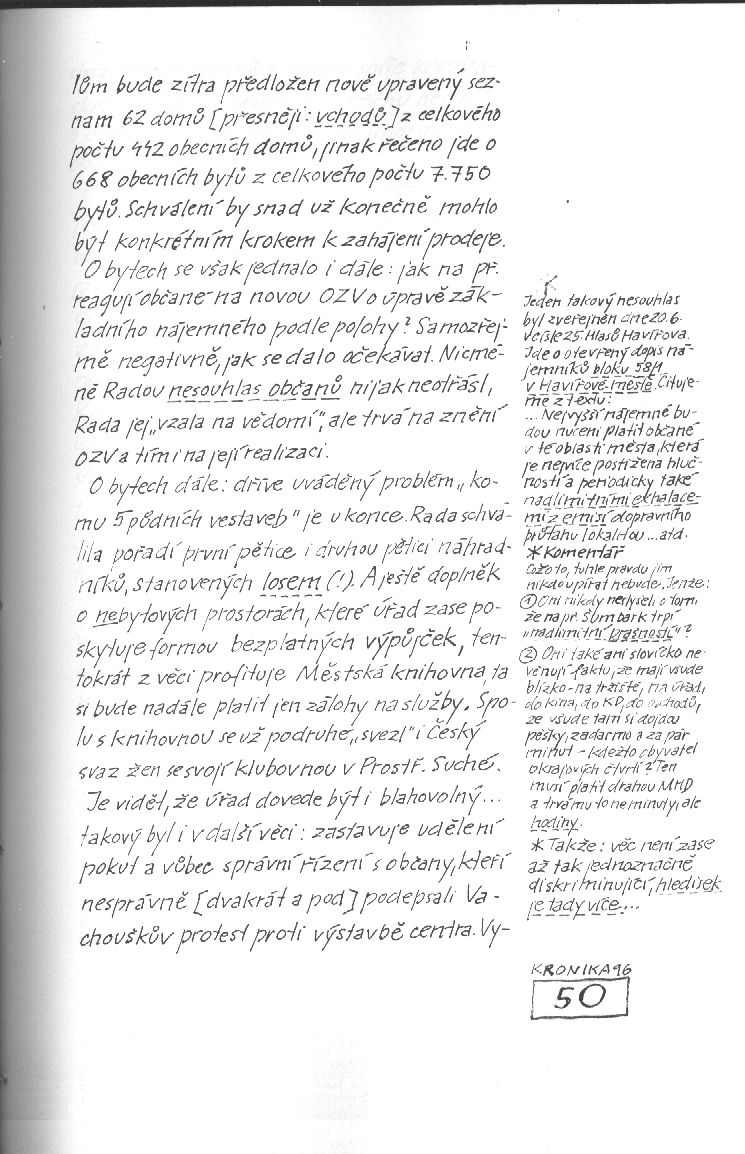 lům bude zítra předložen nově upravený sez-
nam 62 domů [přesněji: vchodů] z celkového
počtu 442 obecních domů, jinak řečeno jde o
668 obecních bytů z celkového počtu 7.750
bytů. Schválení by snad už konečně mohlo
být konkrétním krokem k zahájení prodeje.
O bytech se však jednalo i dále: jak na př.
reagují občané na novou OZV o úpravě zák-
ladního nájemného podle polohy? Samozřej-
mě negativně, jak se dalo očekávat. Nicmé-
ně Radou nesouhlas občanů nijak neotřásl,
Rada jej „vzala na vědomí", ale trvá na znění
OZV a tím i na její realizaci.
O bytech dále: dříve uváděný problém „ko-
mu 5 půdních vestaveb" je u konce. Rada schvá-
lila pořadí první pětice i druhou pětici náhrad-
níků, stanovených losem (!). A ještě doplněk
o nebytových prostorách, které úřad zase po-
skytuje formou bezplatných výpůjček, ten-
tokrát z věci profituje Městská knihovna, ta
si bude nadále platit jen zálohy na služby. Spo-
lu s knihovnou se už podruhé „svezl" i Český
svaz žen se svojí klubovnou v Prostř. Suché.
Je vidět, že úřad dovede být i blahovolný...
takový byl i v další věci: zastavuje udělení
pokut a vůbec správní řízení s občany, kteří
nesprávně [dvakrát a pod] podepsali Va-
chouškův protest proti výstavbě centra. Vy-
Jeden takový nesouhlas
byl zveřejněn dne 20.6.
v čísle 25. Hlasů Havířova.
Jde o otevřený dopis ná-
jemníků bloku 58/1
v Havířově-městě. Cituje-
me z textu:
... Nejvyšší nájemné bu-
dou nuceni platit občané
v té oblasti města, která
je nejvíce postižena hluč-
ností a periodicky také
nadlimitními exhalace-
mi z emisí dopravního
průtahu lokalitou... atd.
* Komentář
Cožo to, tuhle pravdu jim
nikdo upírat nebude. Jenže:
① Oni nikdy neslyšeli o tom,
že na př. Šumbark trpí
„nadlimitní prašností"?
② Oni také ani slovíčko ne-
věnují faktu, že mají všude
blízko - na tržiště, na úřad,
do kina, do KD, do obchodů,
že všude tam si dojdou
pěšky, zadarmo a za pár
minut - kdežto obyvatel
okrajových čtvrtí? Ten
musí platit drahou MHD
a trvá mu to ne minuty, ale
hodiny.
* Takže: věc není zase
až tak jednoznačně
diskriminující, hledisek
je tady více...
KRONIKA 96
50